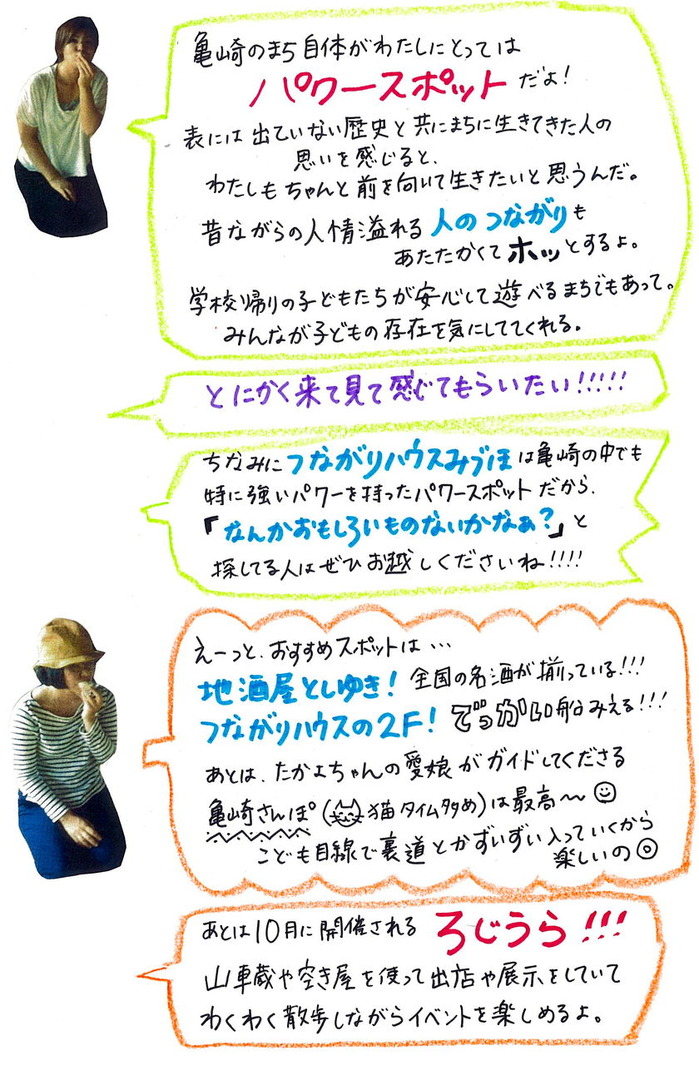 亀崎のまち自体がわたしにとっては
パワースポットだよ!
表には出ていない歴史と共にまちに生きてきた人の
思いを感じると、
わたしもちゃんと前を向いて生きたいと思うんだ。
昔ながらの人情溢れる人のつながりも
あたたかくてホッとするよ。
学校帰りの子どもたちが安心して遊べるまちでもあって。
みんなが子どもの存在を気にしててくれる。
とにかく来て見て感じてもらいたい!!!!!
ちなみにつながりハウスみづほは亀崎の中でも
特に強いパワーを持ったパワースポットだから、
「なんかおもしろいものないかなぁ?」と
探してる人はぜひお越しくださいね!!!!
えーっと、おすすめスポットは…
地酒屋としゆき!全国の名酒が揃っている!!!
つながりハウスの2F!でっかい船みえる!!!
あとは、たかよちゃんの愛娘がガイドしてくださる
亀崎さんぽ(猫タイム多め)は最高〜
こども目線で裏道とかずいずい入っていくから
楽しいの
あとは10月に開催されるろじうら!!!
山車蔵や空き屋を使って出店や展示をしていて
わくわく散歩しながらイベントを楽しめるよ。